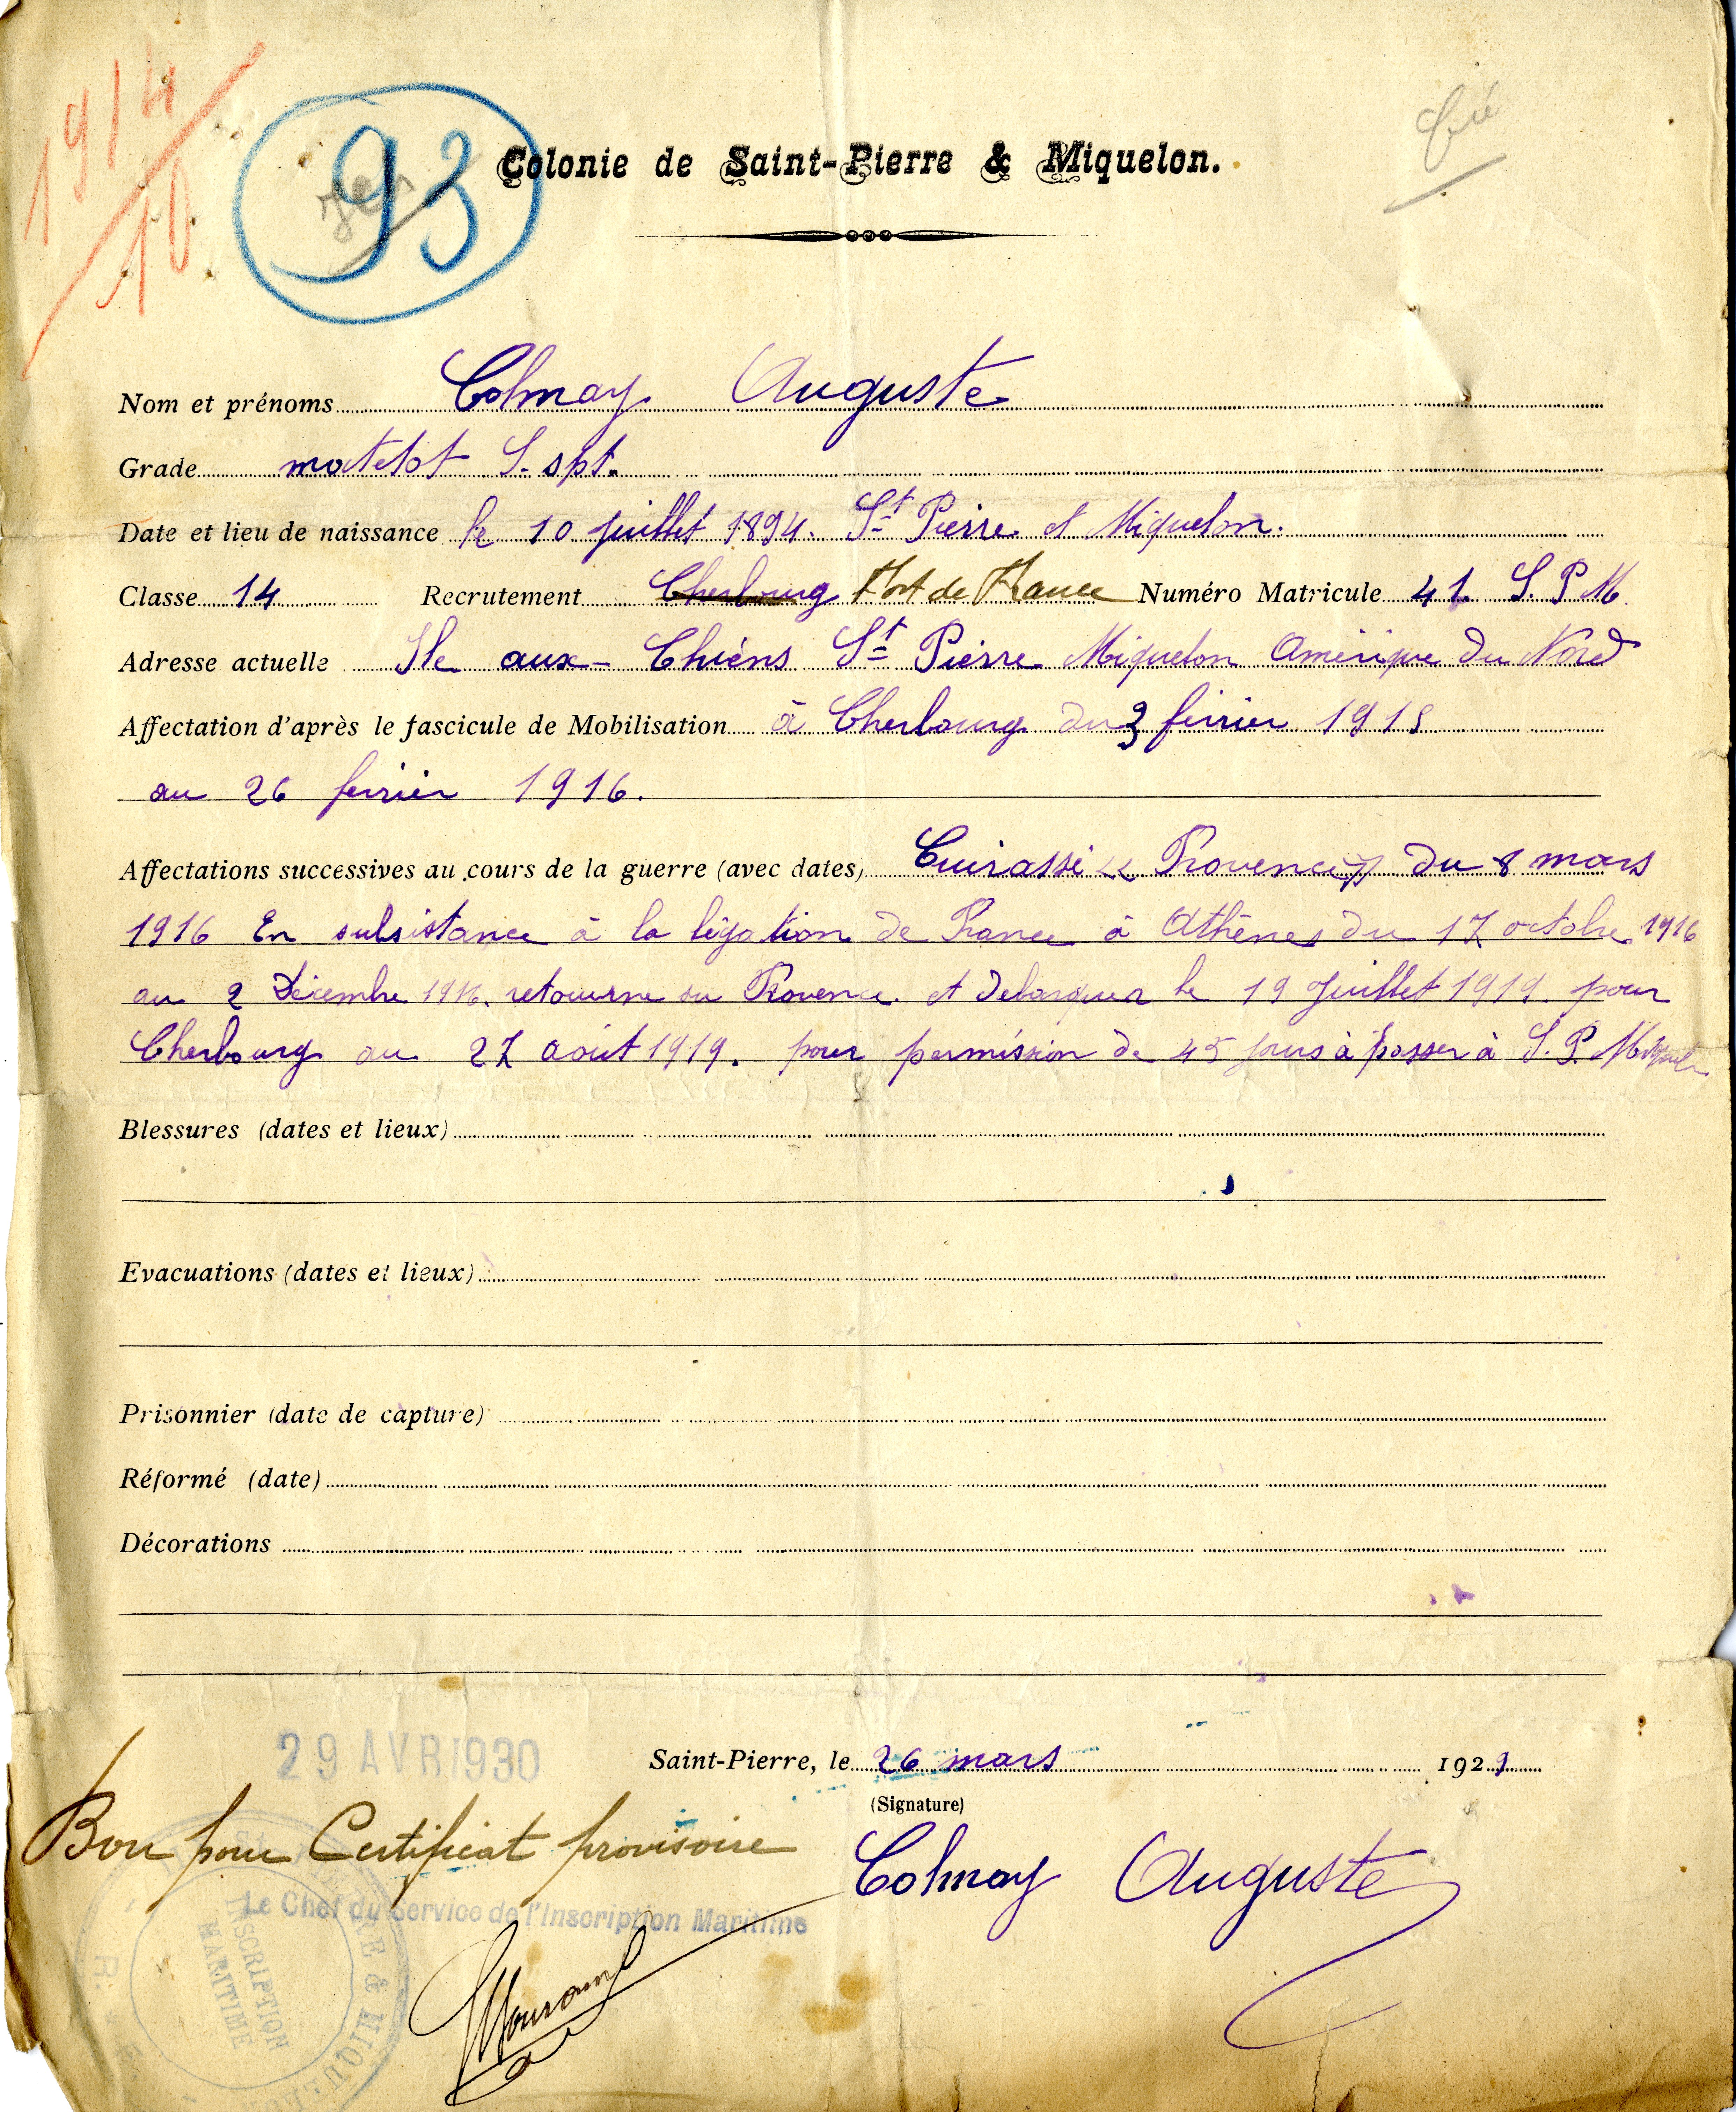 1914
10
93
Colonie de Saint-Pierre & Miquelon.
Nom et prénoms Colmay Auguste
Grade matelot S. spt.
Date et lieu de naissance le 10 juillet 1894. St Pierre et Miquelon.
Classe 14 Recrutement Cherbourg Fort de France Numéro Matricule 41. S. P M
Adresse actuelle Ile aux-Chiens St Pierre Miquelon Amérique du Nord
Affectation d'après le fascicule de Mobilisation à Cherbourg du 3 février 1915
au 26 février 1916.
Affectations successives au cours de la guerre (avec dates) Cuirassé « Provence » du 8 mars
1916 En subsistance à la légation de France à Athènes du 17 octobre 1916
au 2 Décembre 1916. retourne su Provence et debarquer le 19 Juillet 1919. pour
Cherbourg au 27 août 1919. pour permission de 45 jours à passer à S. P. Miquelon
Blessures (dates et lieux)
Evacuations (dates et lieux)
Prisonnier (date de capture)
Réformé (date)
Décorations
29 AVR 1930
Saint-Pierre, le 26 mars 1929
(Signature)
Bon pour Certificat provisoire
Colmay Auguste
Le Chef du Service de l'Inscription Maritime
INSCRIPTION
MARITIME